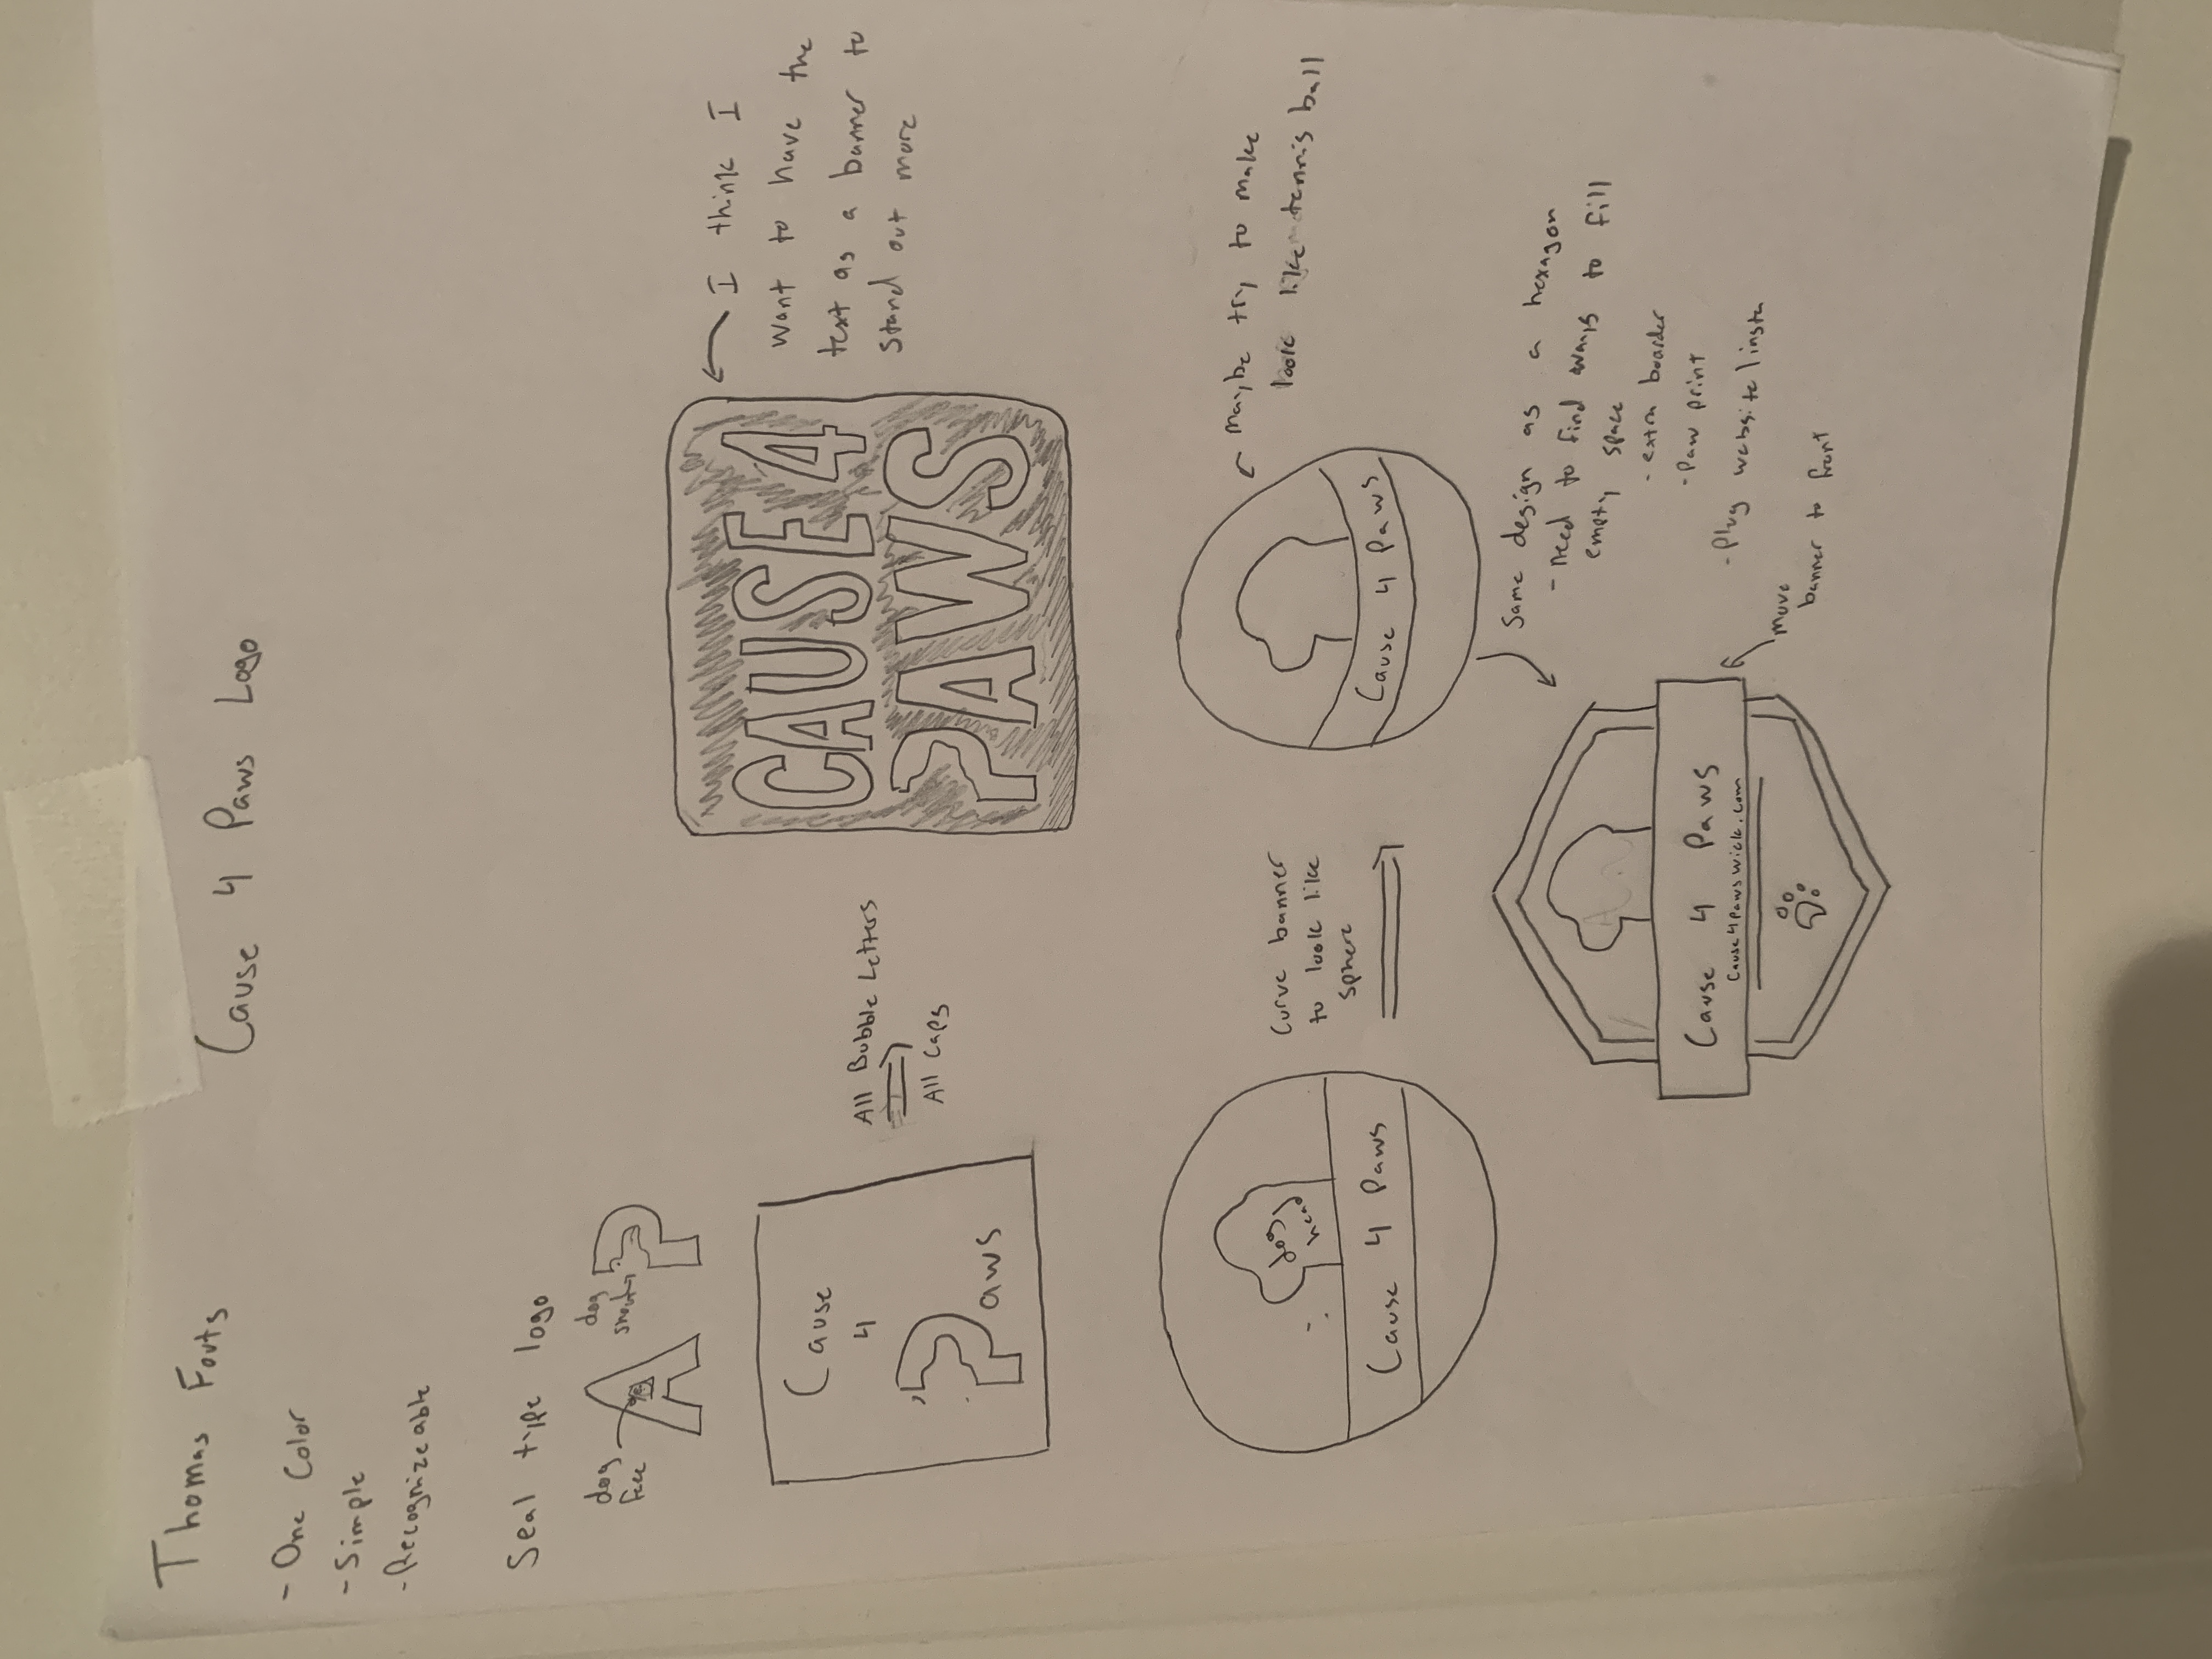 Thomas Fouts
Cause 4 Paws Logo
- One Color
- Simple
- Recognizeable
Seal type logo
dog
face
A
dog
snout
P
Cause
4
Paws
All Bubble Letters
All Caps
CAUSE 4
PAWS
I think I
want to have the
text as a banner to
stand out more
dog
head
Cause 4 Paws
Curve banner
to look like
sphere
Cause 4 Paws
maybe try to make
look like tennis ball
Same design as a hexagon
- need to find ways to fill
empty space
- extra boarder
- Paw print
- Plug website/insta
Cause 4 Paws
Cause4PawsWick.com
move
banner to front